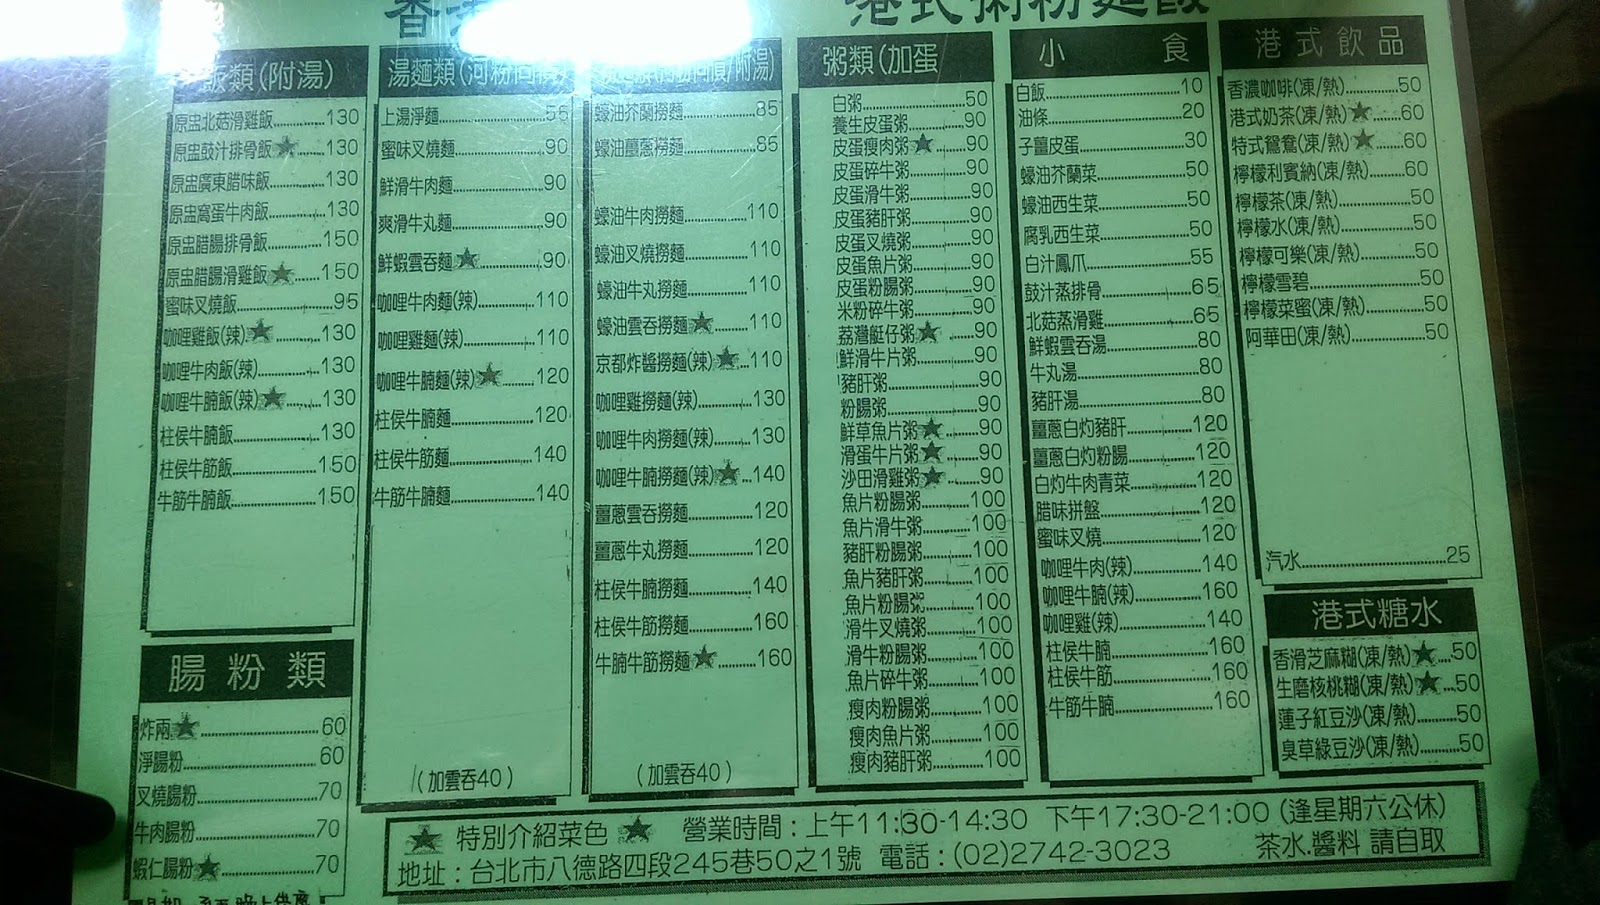 港式粥粉麵飯
飯類(附湯)
原盅北菇滑雞飯 130
原盅鼓汁排骨飯★ 130
原盅廣東腊味飯 130
原盅窩蛋牛肉飯 130
原盅腊腸排骨飯 150
原盅腊腸滑雞飯★ 150
蜜味叉燒飯 95
咖哩雞飯(辣)★ 130
咖哩牛肉飯(辣) 130
咖哩牛腩飯(辣)★ 130
柱侯牛腩飯 130
柱侯牛筋飯 150
牛筋牛腩飯 150
腸粉類
炸兩★ 60
淨腸粉 60
叉燒腸粉 70
牛肉腸粉 70
蝦仁腸粉★ 70
湯麵類(河粉同價)
上湯淨麵 55
蜜味叉燒麵 90
鮮滑牛肉麵 90
爽滑牛丸麵 90
鮮蝦雲吞麵★ 90
咖哩牛肉麵(辣) 110
咖哩雞麵(辣) 110
咖哩牛腩麵(辣)★ 120
柱侯牛腩麵 120
柱侯牛筋麵 140
牛筋牛腩麵 140
(加雲吞40)
同價/附湯)
蠔油芥蘭撈麵 85
蠔油薑蔥撈麵 85
蠔油牛肉撈麵 110
蠔油叉燒撈麵 110
蠔油牛丸撈麵 110
蠔油雲吞撈麵★ 110
京都炸醬撈麵(辣)★ 110
咖哩雞撈麵(辣) 130
咖哩牛肉撈麵(辣) 130
咖哩牛腩撈麵(辣)★ 140
薑蔥雲吞撈麵 120
薑蔥牛丸撈麵 120
柱侯牛腩撈麵 140
柱侯牛筋撈麵 160
牛腩牛筋撈麵★ 160
(加雲吞40)
粥類(加蛋
白粥 50
養生皮蛋粥 90
皮蛋瘦肉粥★ 90
皮蛋碎牛粥 90
皮蛋滑牛粥 90
皮蛋豬肝粥 90
皮蛋叉燒粥 90
皮蛋魚片粥 90
皮蛋粉腸粥 90
米粉碎牛粥 90
荔灣艇仔粥★ 90
鮮滑牛片粥 90
豬肝粥 90
粉腸粥 90
鮮草魚片粥★ 90
滑蛋牛片粥★ 90
沙田滑雞粥★ 90
魚片粉腸粥 100
魚片滑牛粥 100
豬肝粉腸粥 100
魚片豬肝粥 100
魚片粉腸粥 100
滑牛叉燒粥 100
滑牛粉腸粥 100
魚片碎牛粥 100
瘦肉粉腸粥 100
瘦肉魚片粥 100
瘦肉豬肝粥 100
小食
白飯 10
油條 20
子薑皮蛋 30
蠔油芥蘭菜 50
蠔油西生菜 50
腐乳西生菜 50
白汁鳳爪 55
鼓汁蒸排骨 65
北菇蒸滑雞 65
鮮蝦雲吞湯 80
牛丸湯 80
豬肝湯 80
薑蔥白灼豬肝 120
薑蔥白灼粉腸 120
白灼牛肉青菜 120
腊味拼盤 120
蜜味叉燒 120
咖哩牛肉(辣) 140
咖哩牛腩(辣) 160
咖哩雞(辣) 140
柱侯牛腩 160
柱侯牛筋 160
牛筋牛腩 160
港式飲品
香濃咖啡(凍/熱) 50
港式奶茶(凍/熱)★ 60
特式鴛鴦(凍/熱)★ 60
檸檬利賓納(凍/熱) 60
檸檬茶(凍/熱) 50
檸檬水(凍/熱) 50
檸檬可樂(凍/熱) 50
檸檬雪碧 50
檸檬菜蜜(凍/熱) 50
阿華田(凍/熱) 50
汽水 25
港式糖水
香滑芝麻糊(凍/熱)★ 50
生磨核桃糊(凍/熱)★ 50
蓮子紅豆沙(凍/熱) 50
臭草綠豆沙(凍/熱) 50
★ 特別介紹菜色 ★ 營業時間：上午11:30-14:30 下午17:30-21:00 (逢星期六公休)
地址：台北市八德路四段245巷50之1號 電話：(02)2742-3023 茶水.醬料 請自取